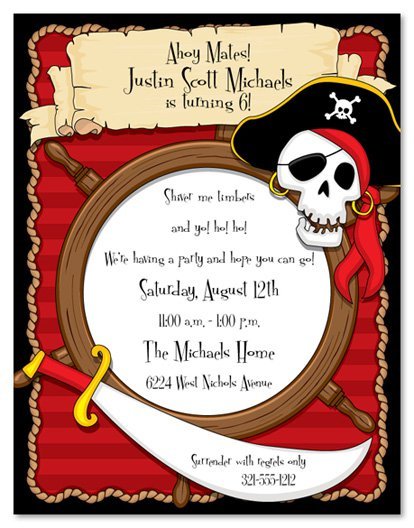 Ahoy Mates!
Justin Scott Michaels
is turning 6!
Shiver me timbers
and yo! ho! ho!
We're having a party and hope you can go!
Saturday, August 12th
11:00 a.m. - 1:00 p.m.
The Michaels Home
6224 West Nichols Avenue
Surrender with regrets only
321-555-1212